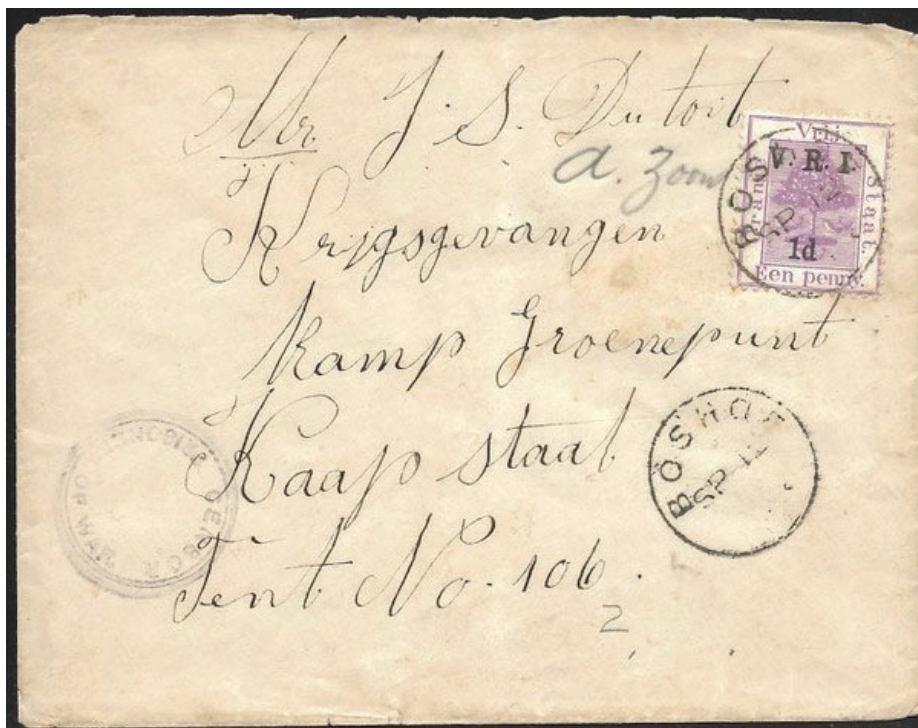 Mr J. S. Du toit
a. Zoon
Krygsgevangen
Kamp Groenepunt
Kaap staat
Tent No. 106.
2
Vrij
Staat.
V. R. I.
1d
Een penny.
BOSHOF
SP 12
CENSOR
OF WAR